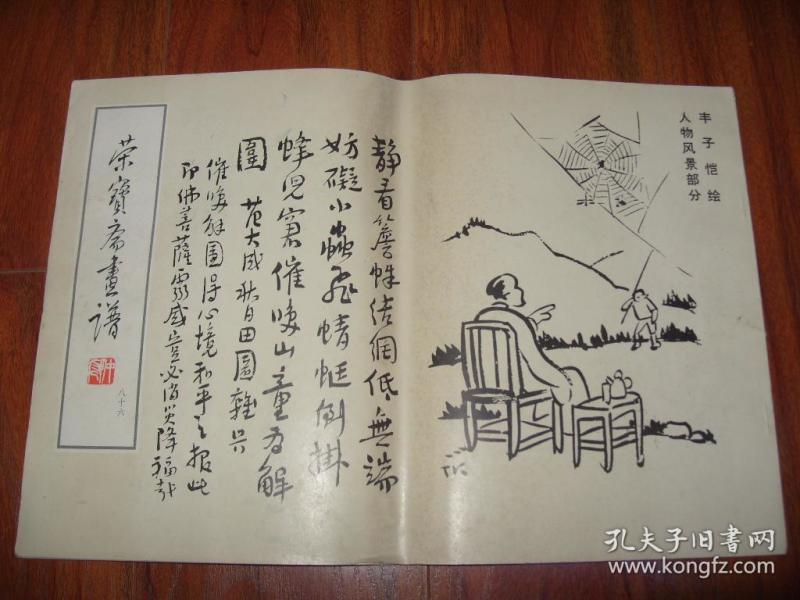 丰子恺绘
人物风景部分
静看簷蛛结網低無端
妨礙小蟲飛蜻蜓倒掛
蜂兒窘催喚山童为解
圍 范大成秋日田園雜兴
催喚解圍得心境和平之报此
即佛菩薩靈感豈必消災降福哉
TK
榮寶斋畫谱
八十六
孔夫子旧书网
www.kongfz.com